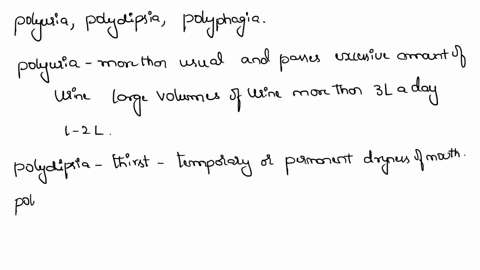 polyuria, polydipsia, polyphagia.
polyuria - more than usual and passes excessive amount of
Urine large volumes of Urine more than 3L a day
1-2L.
polydipsia - thirst - temporary or permanent dryness of mouth.
pol